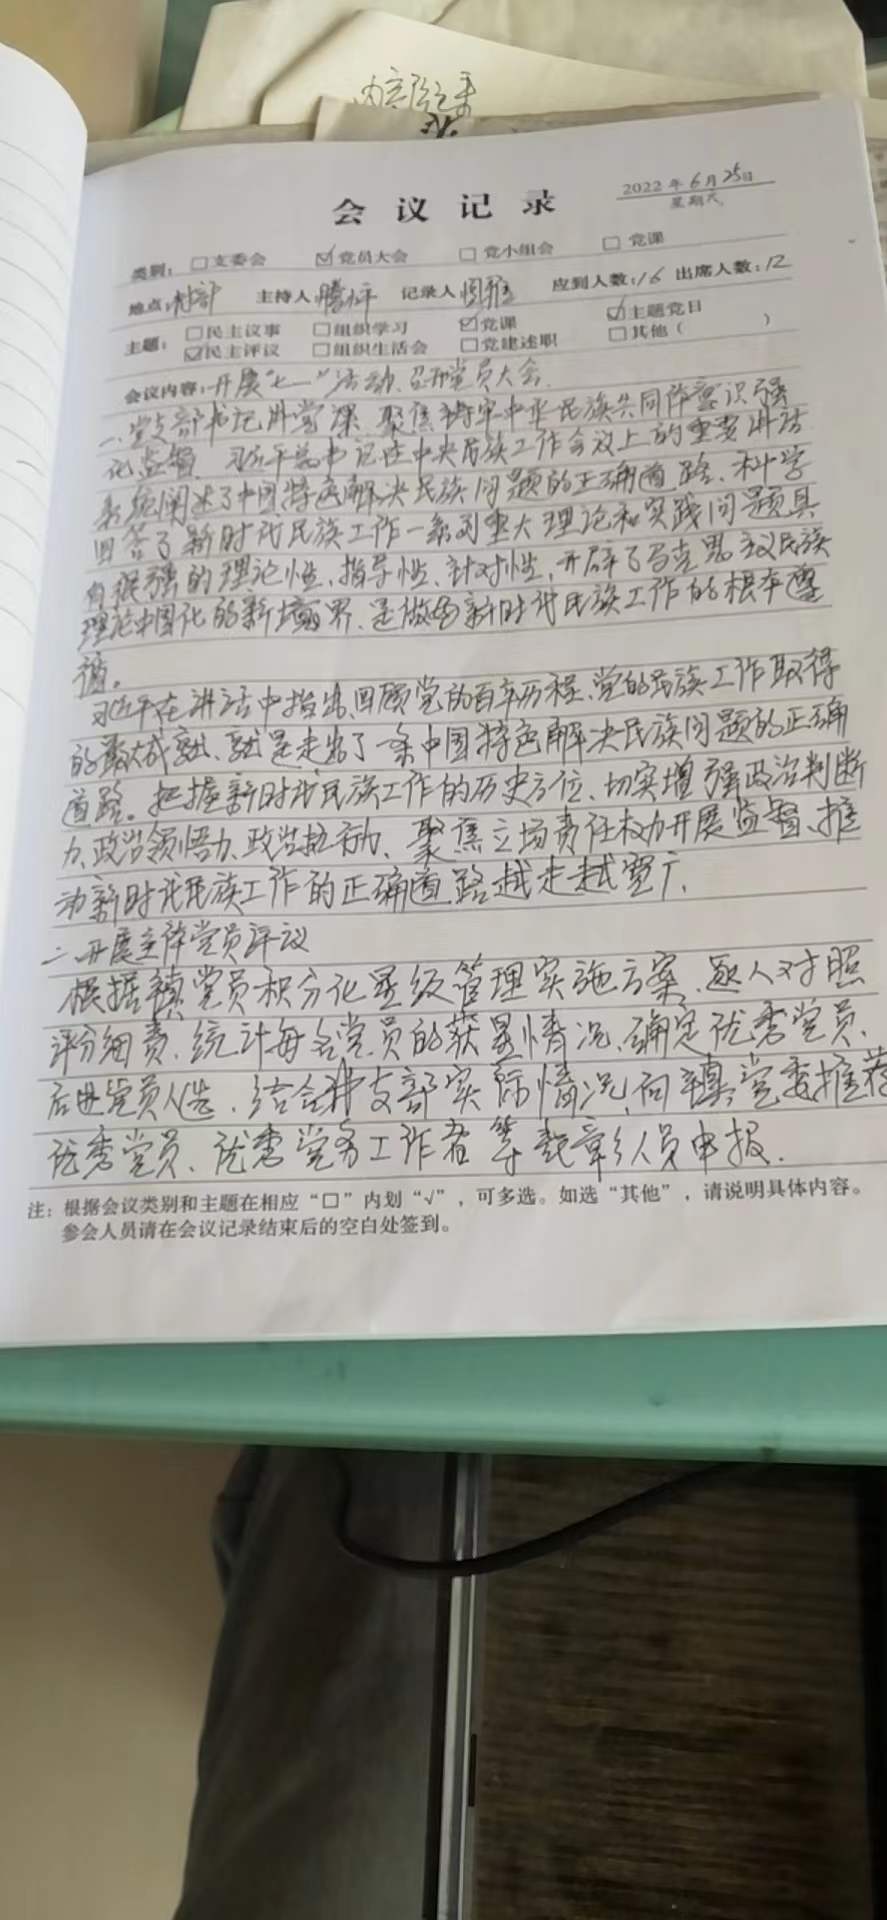 会议记录
2022年6月25日
星期天
类别：□支委会 ☑党员大会 □党小组会 □党课
地点：村部 主持人 记录人 应到人数：16 出席人数：12
主题：□民主议事 □组织学习 ☑党课 ☑主题党日
☑民主评议 □组织生活会 □党建述职 □其他（ ）
会议内容：开展“七一”活动、召开党员大会
一、党支部书记讲党课 聚焦铸牢中华民族共同体意识强
化监督 习近平总书记在中央民族工作会议上的重要讲话
系统阐述了中国特色解决民族问题的正确道路、科学
回答了新时代民族工作一系列重大理论和实践问题具
有很强的理论性、指导性、针对性，开辟了马克思主义民族
理论中国化的新境界、是做好新时代民族工作的根本遵
循。
习近平在讲话中指出、回顾党的百年历程、党的民族工作取得
的最大成就、就是走出了一条中国特色解决民族问题的正确
道路。把握新时代民族工作的历史方位、切实增强政治判断
力、政治领悟力、政治执行力、聚焦立场责任权力开展监督、推
动新时代民族工作的正确道路越走越宽广、
二、开展主体党员评议
根据镇党员积分化星级管理实施方案、逐人对照
评分细责、统计每名党员的获星情况、确定优秀党员、
后进党员人选、结合支部实际情况、向镇党委推荐
优秀党员、优秀党务工作者等表彰人员申报、
注：根据会议类别和主题在相应“□”内划“√”，可多选。如选“其他”，请说明具体内容。
参会人员请在会议记录结束后的空白处签到。